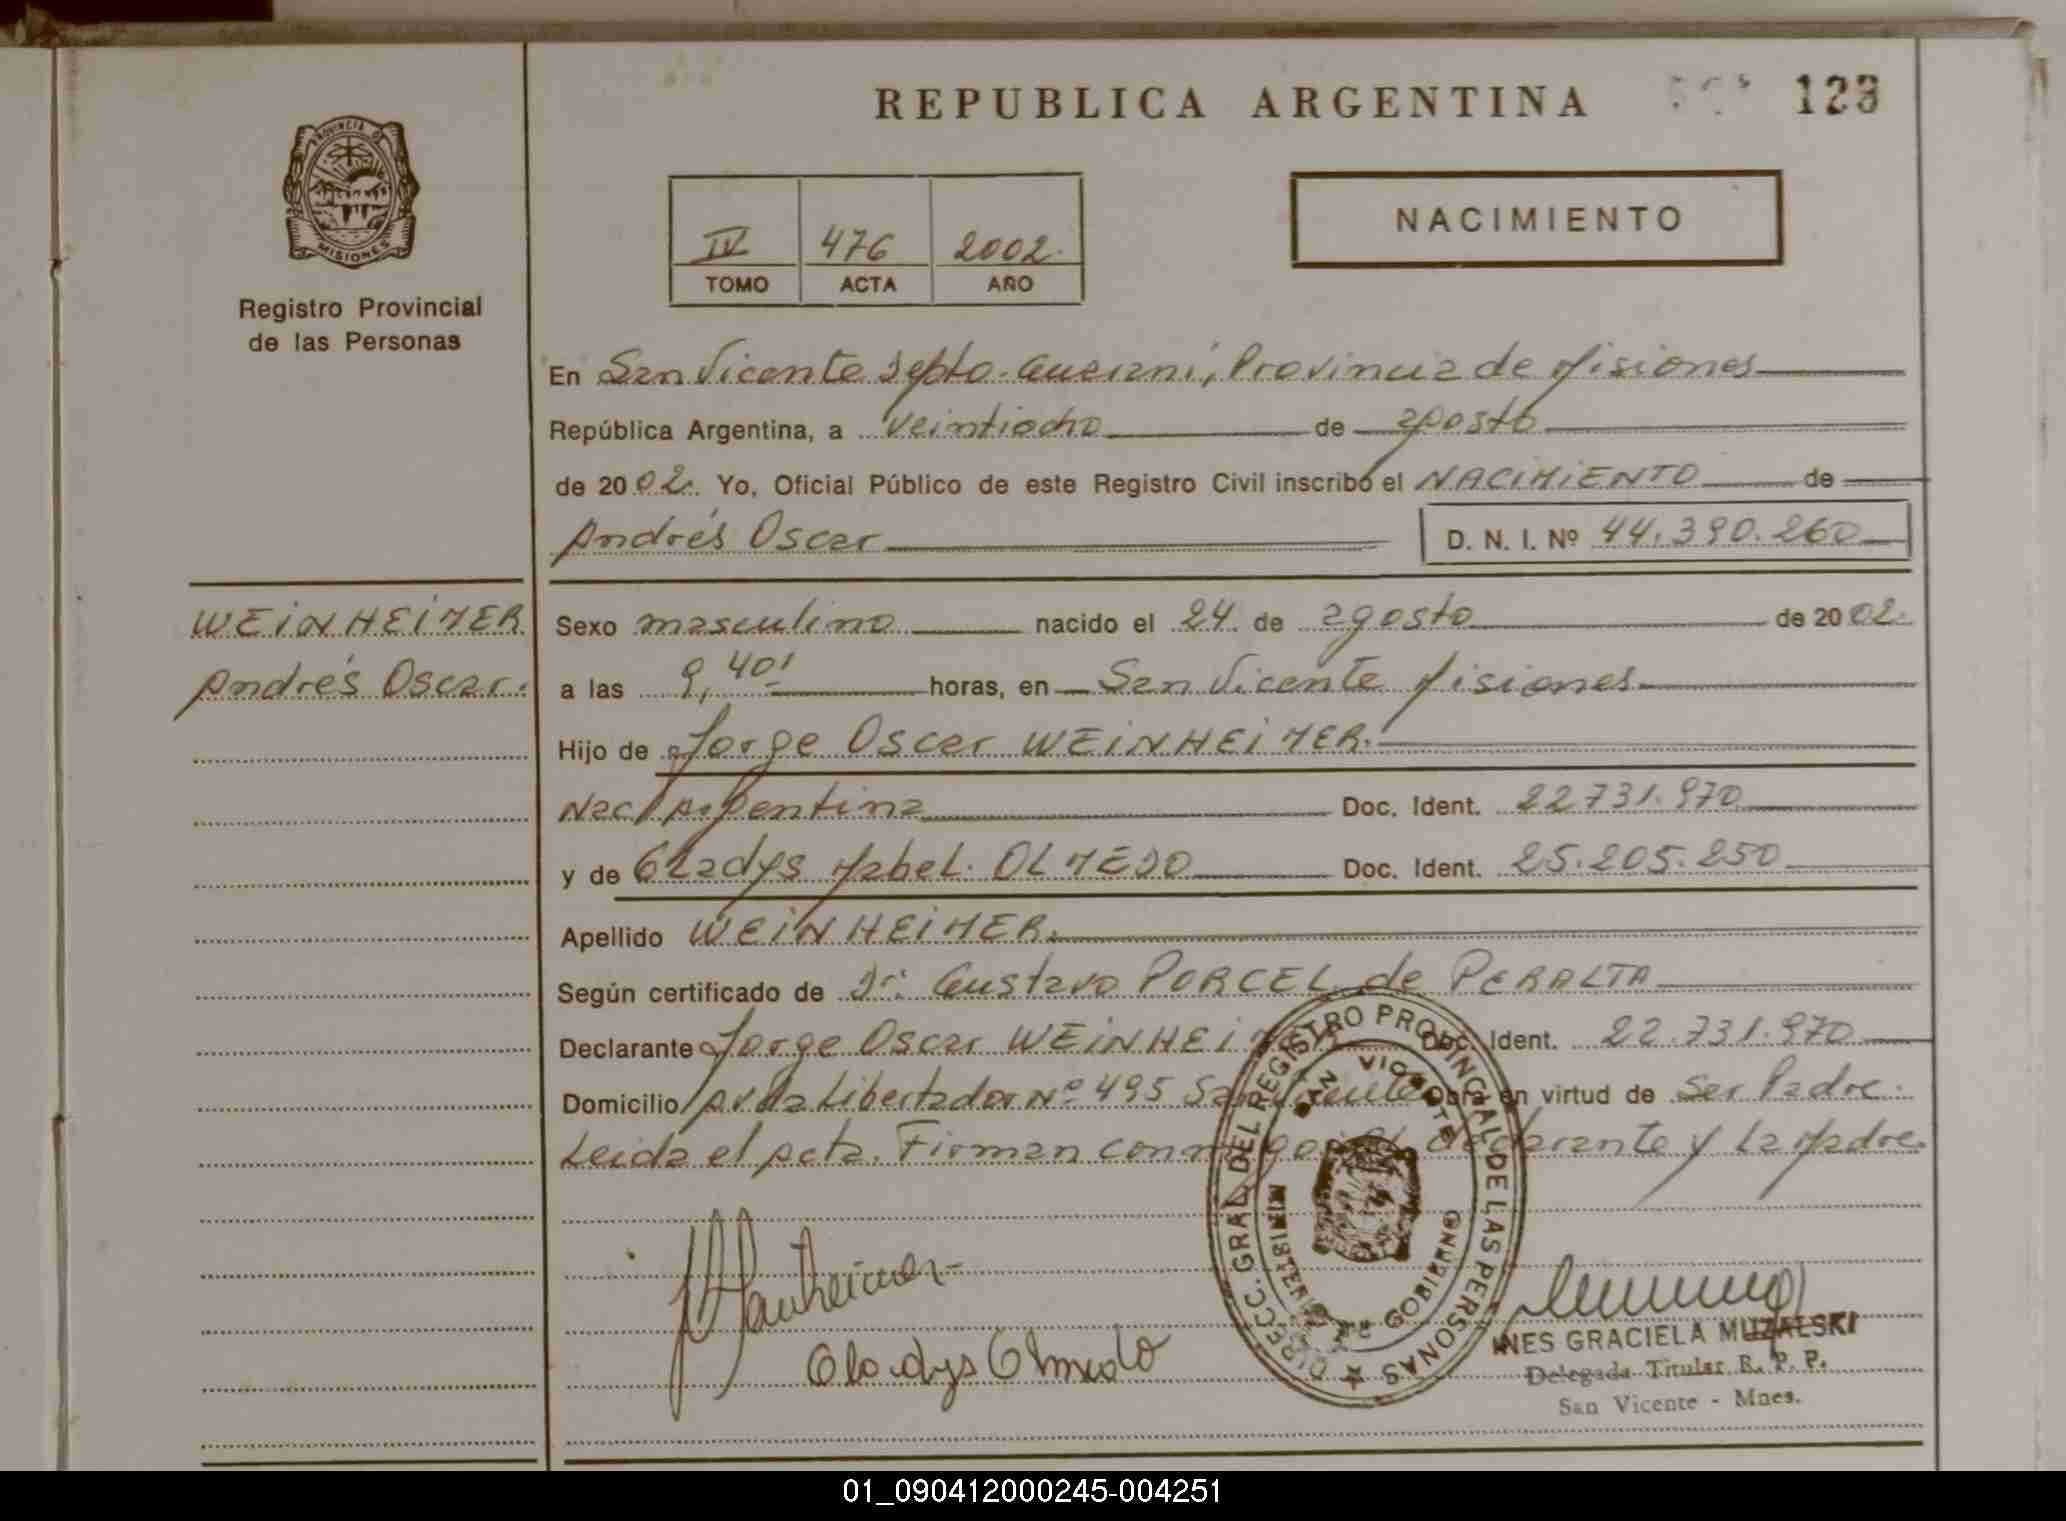 REPUBLICA ARGENTINA 123
PROVINCIA DE
MISIONES
Registro Provincial
de las Personas
IV 476 2002.
TOMO ACTA AÑO
NACIMIENTO
En San Vicente Depto. Guaraní, Provincia de Misiones
República Argentina, a veintiocho de agosto
de 2002. Yo, Oficial Público de este Registro Civil inscribo el NACIMIENTO de
Andrés Oscar D. N. I. Nº 44.390.260
WEINHEIMER
Andrés Oscar.
Sexo masculino nacido el 24 de agosto de 2002.
a las 9,40' horas, en San Vicente Misiones
Hijo de Jorge Oscar WEINHEIMER.
Nac. Argentina Doc. Ident. 22.731.970
y de Gladys Mabel OLMEDO Doc. Ident. 25.205.250
Apellido WEINHEIMER.
Según certificado de Dr. Gustavo PORCEL de PERALTA
Declarante Jorge Oscar WEINHEIMER Doc. Ident. 22.731.970
Domicilio Avda Libertador Nº 495 San Vicente Obra en virtud de Ser Padre.
Leida el acta. Firman conmigo el declarante y La Madre.
DIRECC. GRAL. DEL REGISTRO PROVINCIAL DE LAS PERSONAS
SAN VICENTE
MINISTERIO DE GOBIERNO
Gladys Olmedo
INES GRACIELA MUZALSKI
Delegada Titular R. P. P.
San Vicente - Mnes.
01_090412000245-004251